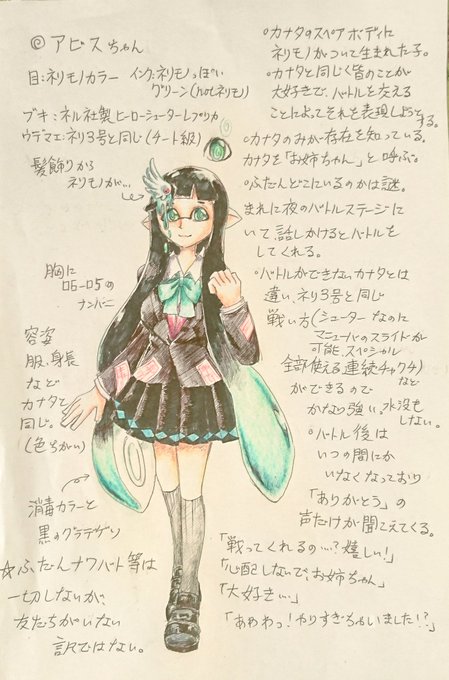 ◎アビスちゃん
目:ネリモノカラー インク:ネリモノっぽい
グリーン(notネリモノ)
ブキ:ネル社製ヒーローシューターレプリカ
ウデマエ:ネリ3号と同じ(チート級)
髪飾りから
ネリモノが…
胸に
06-05の
ナンバー
容姿
服、身長
など
カナタと
同じ。
(色ちがい)
消毒カラーと
黒のグラデゲソ
☆ふだんナワバト等は
一切しないが、
友だちがいない
訳ではない。
◦カナタのスペアボディに
ネリモノがついて生まれた子。
◦カナタと同じく皆のことが
大好きで、バトルを交える
ことによってそれを表現しようとする。
◦カナタのみが存在を知っている。
カナタを「お姉ちゃん」と呼ぶ。
◦ふだんどこにいるのかは謎。
まれに夜のバトルステージに
いて、話しかけるとバトルを
してくれる。
◦バトルができないカナタとは
違い、ネリ3号と同じ
戦い方(シューターなのに
マニューバのスライドが
可能、スペシャル
全部使える、連続チャクチ)など
ができるので
かなり強い、水没も
しない。
◦バトル後は
いつの間にか
いなくなっており
「ありがとう」の
声だけが聞こえてくる。
「戦ってくれるの…?嬉しい!」
「心配しないで、お姉ちゃん」
「大好きぃ…」
「あわわっ!やりすぎちゃいました!?」